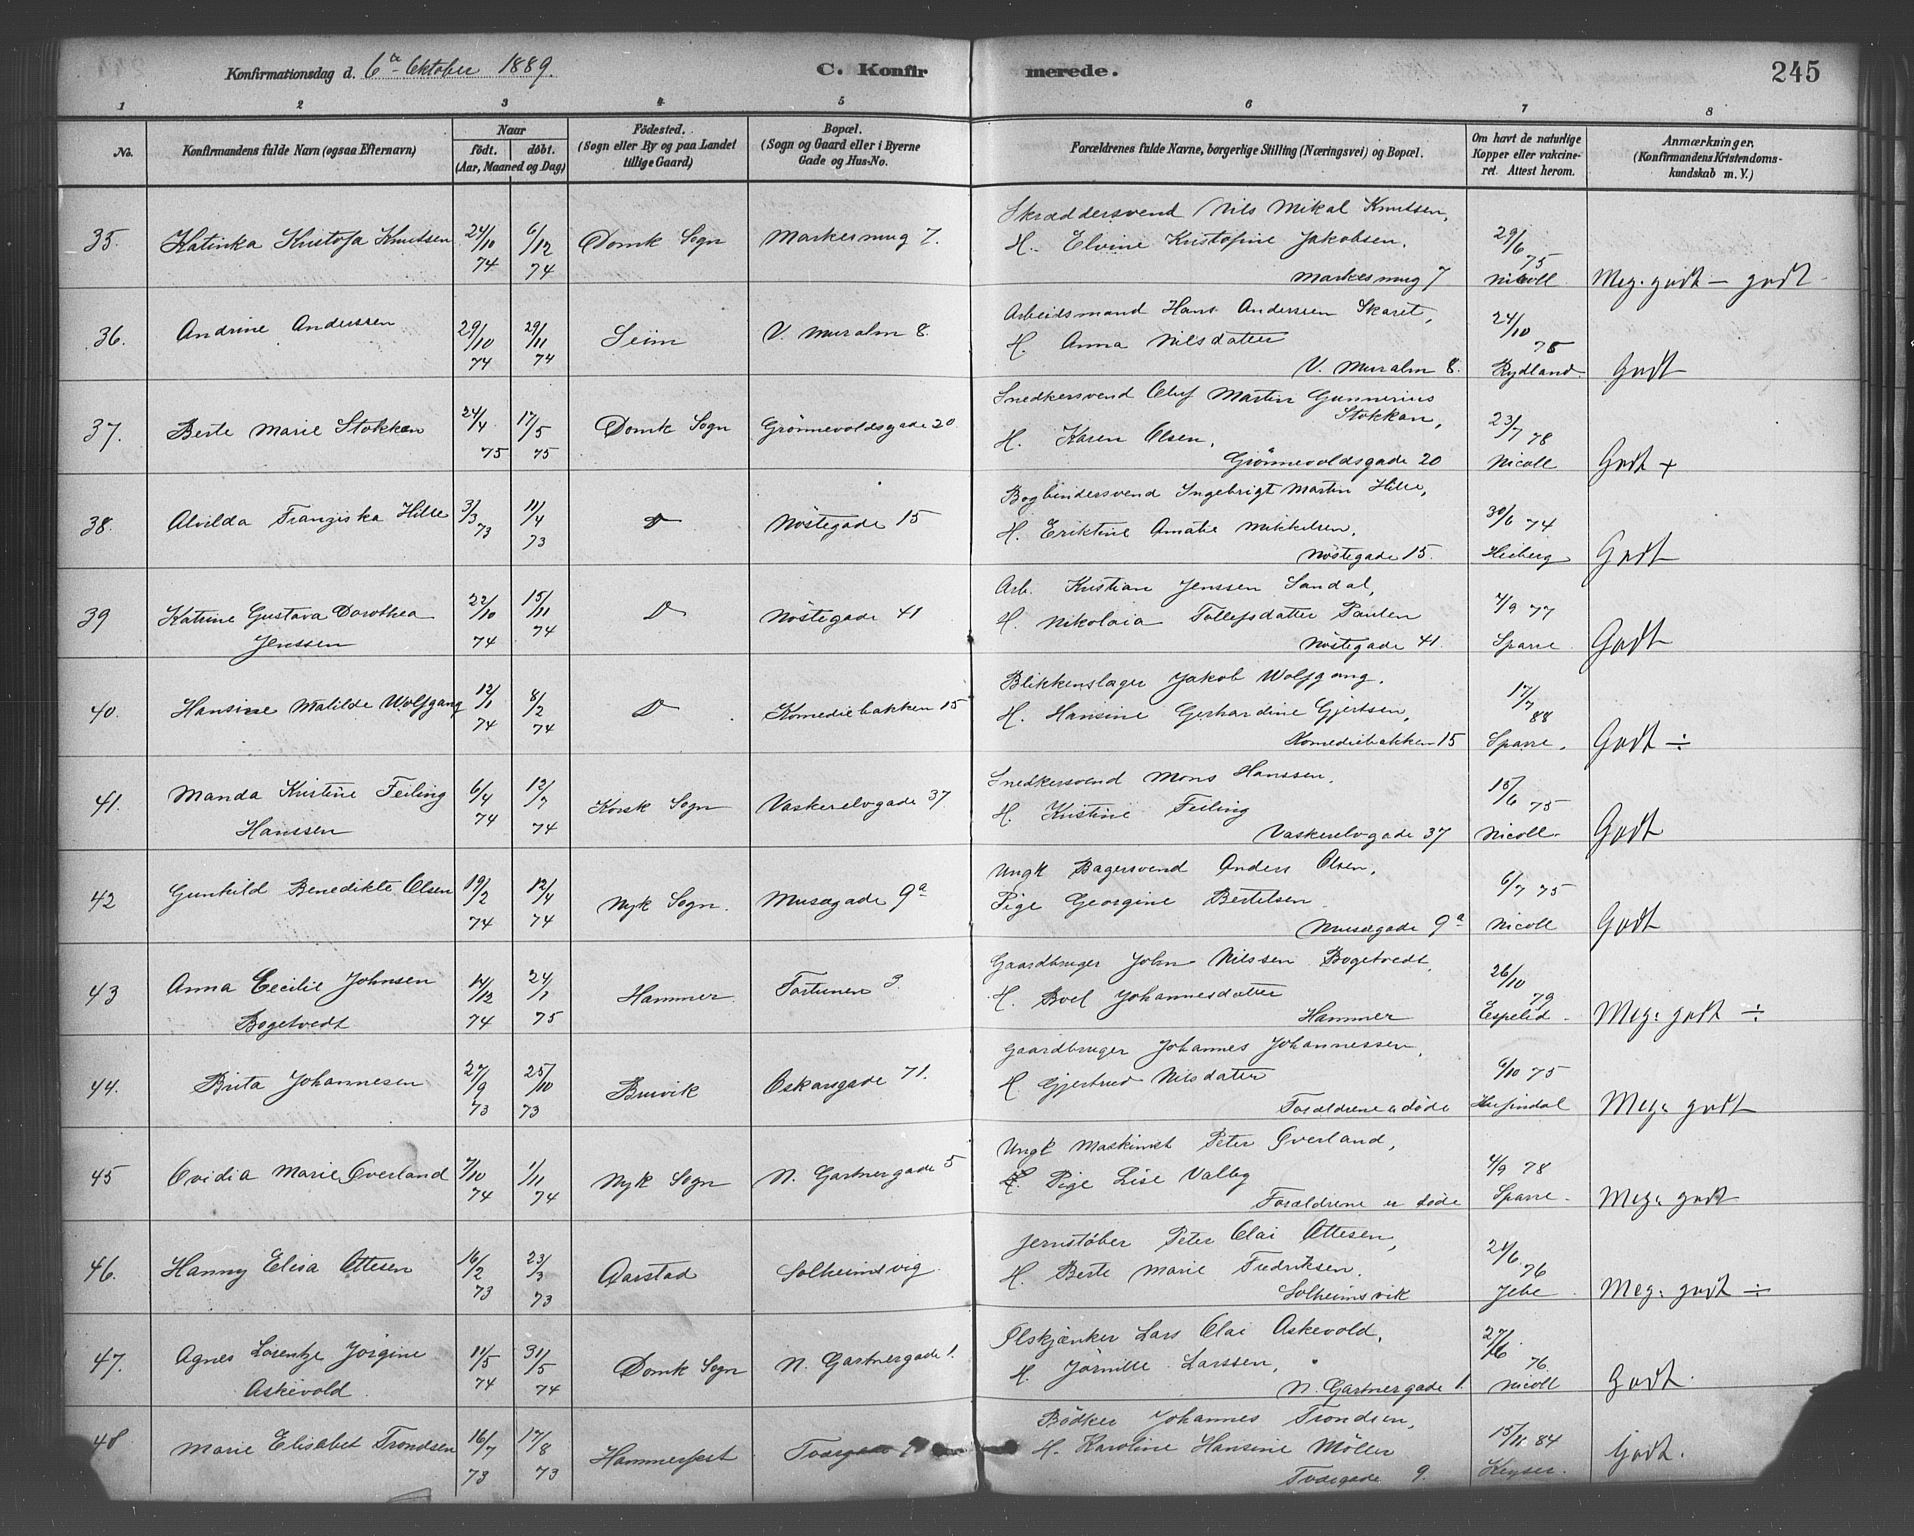 Konfirmationsdag d. 6te Oktober 1889. C. Konfirmerede. 245
1 2 3 4 5 6 7 8
No. Konfirmandens fulde Navn (ogsaa Efternavn) Naar født. døbt. (Aar, Maaned og Dag) Födested. (Sogn eller By og paa Landet tillige Gaard) Bopæl. (Sogn og Gaard eller i Byerne Gade og Hus-No. Forældrenes fulde Navne, borgerlige Stilling (Næringsvei) og Bopæl. Om havt de naturlige Kopper eller vakcineret. Attest herom. Anmærkninger. (Konfirmandens Kristendomskundskab m. V.)
35. Katinka Kristofa Knutsen 24/10 74 6/12 74 Domk Sogn Markesmug 7. Skræddersvend Nils Mikal Knutsen,
H. Elvine Kristofine Jakobsen.
Markesmug 7 29/6 75 Nicoll Meg. godt – godt
36. Andrine Anderssen 29/10 74 29/11 74 Seim V. Muralm 8. Arbeidsmand Hans Anderssen Skaret,
H. Anna Nilsdatter
V. Muralm 8. 24/10 75 Rydland. Godt
37. Berte Marie Stokkan 24/4 75 17/5 75 Domk Sogn Grönnevoldsgade 20 Snedkersvend Oluf Martin Gunnerius
Stokkan,
H. Karen Olsen,
Grönnevoldsgade 20 23/7 78 Nicoll Godt +
38. Alvilda Franziska Hille 3/3 73 11/4 73 D Nöstegade 15 Bogbindersvend Ingebrigt Martin Hille,
H. Eriktine Amalie Mikkelsen,
Nöstegade 15. 30/6 74 Heiberg Godt
39 Katrine Gustava Dorothea
Jenssen 22/10 74 15/11 74 D Nöstegade 41 Arb. Kristian Jenssen Sandal,
H. Nikolaia Tollefsdatter Paulen
Nöstegade 41. 7/9 77 Sparre. Godt
40. Hansine Matilde Wolfgang 12/1 74 8/2 74 D Komediebakken 15 Blikkenslager Jakob Wolfgang.
H. Hansine Gerhardine Gjertsen,
Komediebakken 15 17/7 88 Sparre. Godt ÷
41. Manda Kristine Feiling
Hanssen 6/4 74 12/7 74 Korsk Sogn Vaskerelvgade 37 Snedkersvend Mons Hanssen.
H. Kristine Feiling
Vaskerelvgade 37 15/6 75 Nicoll. Godt
42 Gunhild Benedikte Olsen 19/2 74 12/4 74 Nyk Sogn. Musægade 9a Ungk Bagersvend Anders Olsen,
Pige Georgine Bertelsen
Musægade 9a 6/7 75 Nicoll Godt
43 Anna Cecilie Johnsen
Bogetvedt 14/12 74 24/1 75 Hammer Fortunen 3. Gaardbruger John Nilssen Bogetvedt,
H. Boel Johannesdatter
Hammer 26/10 79 Espelid. Meg: godt ÷
44. Brita Johannesen 27/9 73 25/10 73 Bruvik Oskarsgade 71. Gaardbruger Johannes Johannessen,
H. Gjertrud Nilsdatter
Forældrene døde 6/10 75 Meg: godt
45 Ovidia Marie Overland 7/10 74 1/11 74 Nyk Sogn N. Gartnergade 5 Ungk Maskinist Peter Overland,
Pige Lise Valby
Forældrene er døde 4/9 78 Sparre. Meg: godt
46. Hanny Elisa Ottesen 16/2 73 23/3 73 Aarstad Solheimsvig Jernstöber Peter Olai Ottesen,
H. Berte Marie Fredriksen.
Solheimsvik 24/6 76 Jebe Meg: godt ÷
47. Agnes Lorentze Jörgine
Askevold 11/5 74 31/5 74 Domk Sogn N. Gartnergade 1. Ölskjænker Lars Olai Askevold,
H. Jörnille Larssen,
N. Gartnergade 1. 27/6 76. Nicoll Godt.
48 Marie Elisabet Trondsen 16/7 73 17/8 73 Hammerfest Tværgade 9 Bödker Johannes Trondsen,
H. Karoline Hansine Möller
Tværgade 9. 15/11 84 Keyser. Godt.